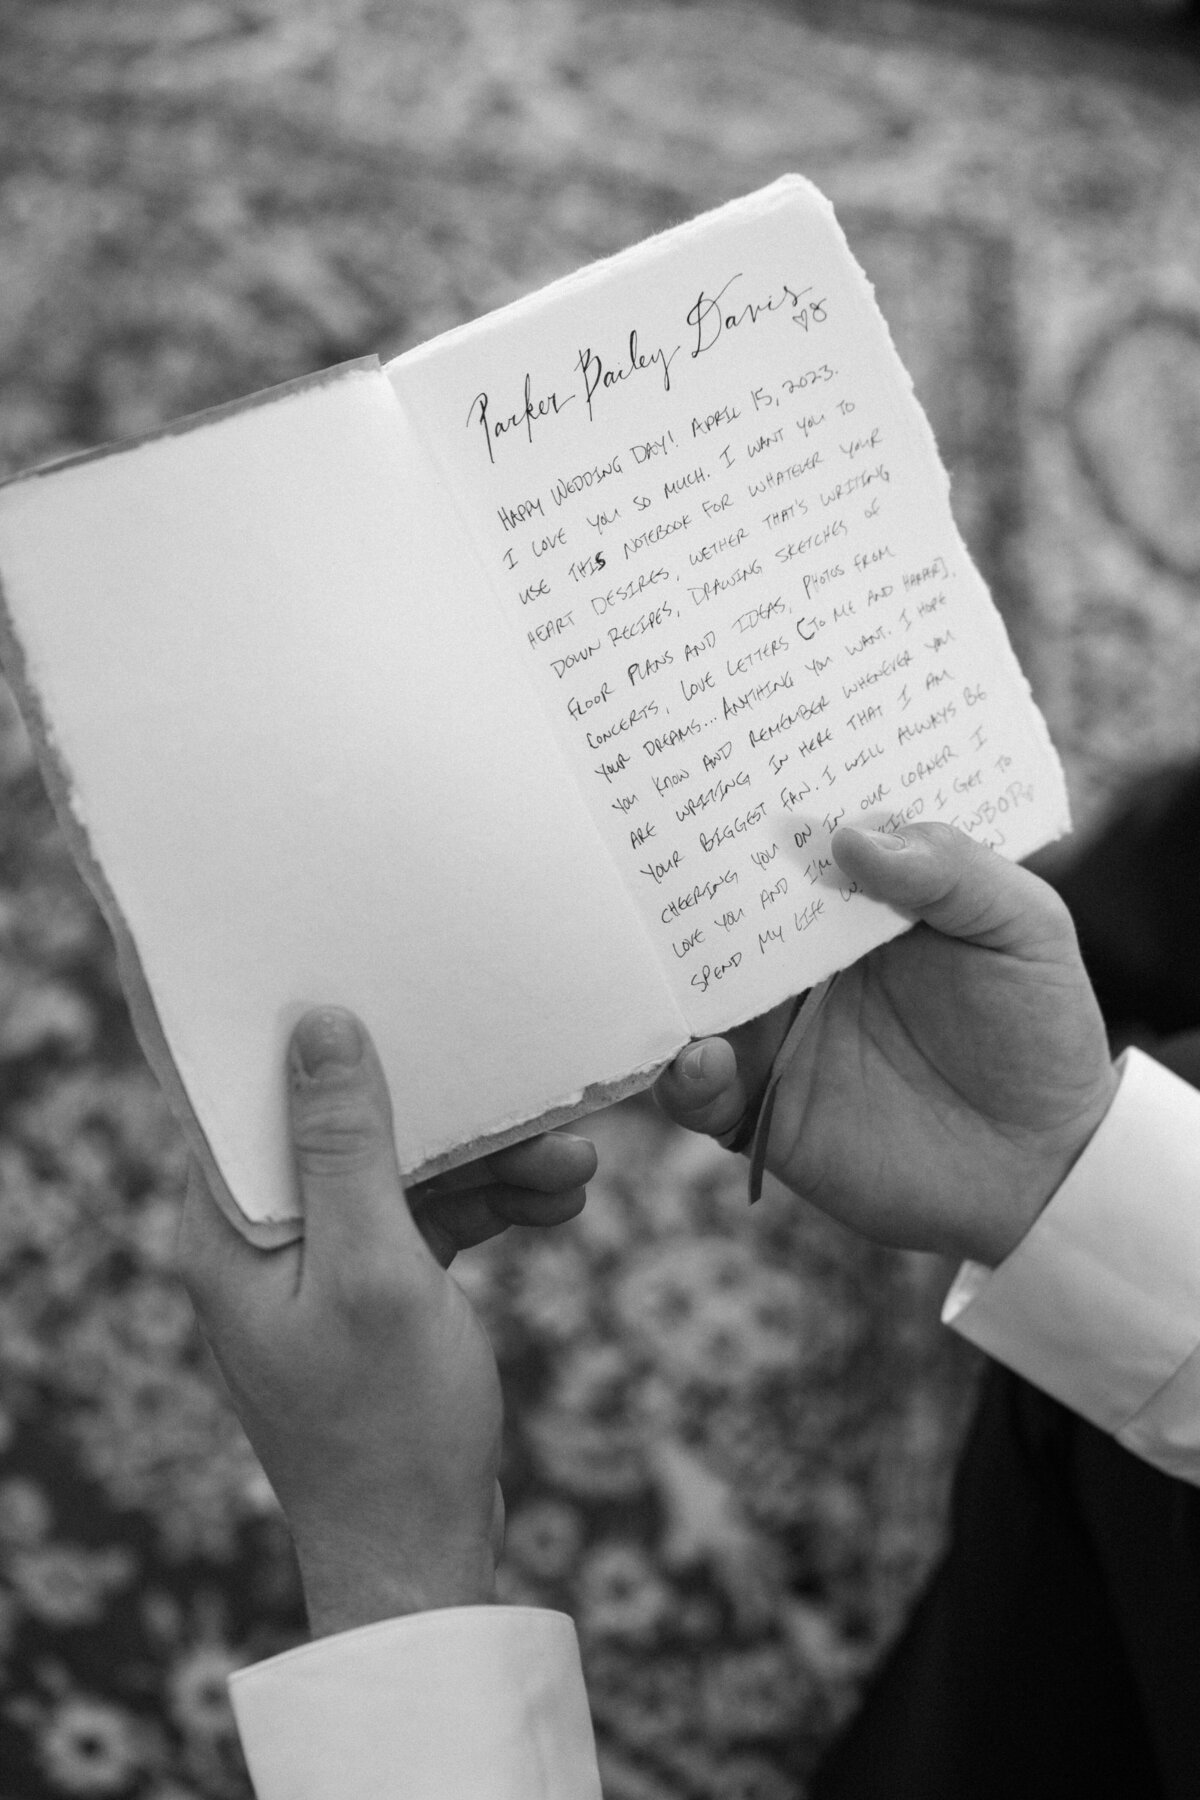 Parker Bailey Davis
HAPPY WEDDING DAY! APRIL 15, 2023.
I LOVE YOU SO MUCH. I WANT YOU TO
USE THIS NOTEBOOK FOR WHATEVER YOUR
HEART DESIRES, WETHER THAT'S WRITING
DOWN RECIPES, DRAWING SKETCHES OF
FLOOR PLANS AND IDEAS, PHOTOS FROM
CONCERTS, LOVE LETTERS [TO ME AND HARPER],
YOUR DREAMS... ANYTHING YOU WANT. I HOPE
YOU KNOW AND REMEMBER WHENEVER YOU
ARE WRITING IN HERE THAT I AM
YOUR BIGGEST FAN. I WILL ALWAYS BE
CHEERING YOU ON IN OUR CORNER. I
LOVE YOU AND I'M I GET TO
SPEND MY LIFE